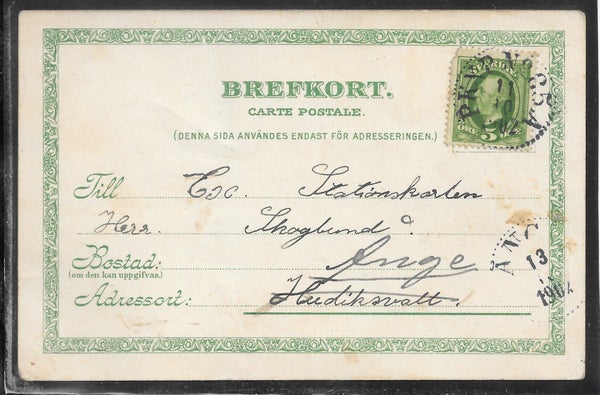 BREFKORT.
CARTE POSTALE.
(DENNA SIDA ANVÄNDES ENDAST FÖR ADRESSERINGEN.)
SVERIGE
5
ÖRE
PKXP No 65 A
11
10
02
Till Exc. Stationskarlen
Herr. Skoglund
Bostad: Ånge
(om den kan uppgifvas.)
Adressort: Hudiksvall.
ÅNGE
13
1902